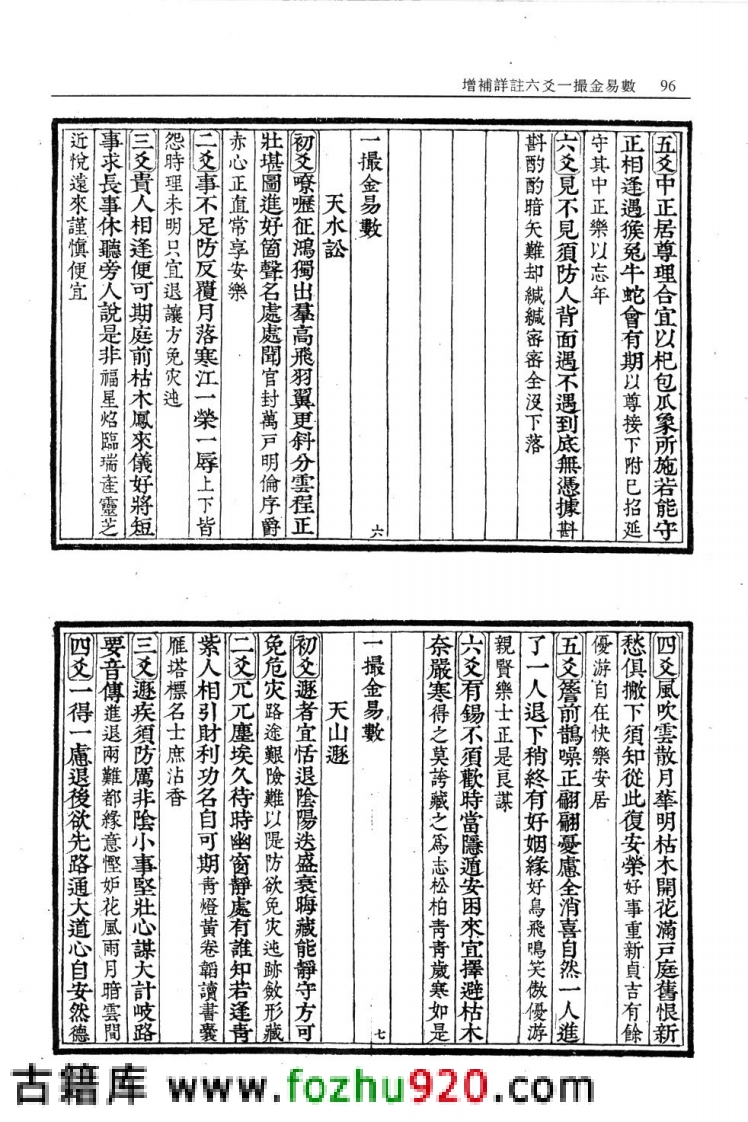 增補詳註六爻一撮金易數 96
五爻中正居尊理合宜以杞包瓜象所施若能守
正相逢遇猴兔牛蛇會有期以尊接下附已招延
守其中正樂以忘年
六爻見不見須防人背面遇不遇到底無憑據斟
斟酌酌暗矢難却緘緘密密全沒下落
一撮金易數
六
天水訟
初爻嘹嚦征鴻獨出羣高飛羽翼更斜分雲程正
壯堪圖進好箇聲名處處聞官封萬戸明倫序爵
赤心正直常享安樂
二爻事不足防反覆月落寒江一榮一辱上下皆
怨時理未明只宜退讓方免灾迍
三爻貴人相逢便可期庭前枯木鳳來儀好將短
事求長事休聽旁人說是非福星炤臨瑞產靈芝
近悅遠來謹慎便宜
四爻風吹雲散月華明枯木開花滿戸庭舊恨新
愁俱撇下須知從此復安榮好事重新貞吉有餘
優游自在快樂安居
五爻簷前鵲噪正翩翩憂慮全消喜自然一人進
了一人退下稍終有好姻緣好鳥飛鳴笑傲優游
親賢樂士正是良謀
六爻有錫不須歡時當隱遁安困來宜擇避枯木
奈嚴寒得之莫誇藏之爲志松柏靑靑歲寒如是
一撮金易數
七
天山遯
初爻遯者宜恬退陰陽迭盛衰晦藏能靜守方可
免危灾路途艱險難以隄防欲免灾迍跡斂形藏
二爻兀兀塵埃久待時幽窗靜處有誰知若逢靑
紫人相引財利功名自可期靑燈黃卷韜讀書囊
雁塔標名士庶沾香
三爻遯疾須防厲非陰小事堅壯心謀大計岐路
要音傳進退兩難都緣意慳妒花風雨月暗雲間
四爻一得一慮退後欲先路通大道心自安然德
古籍库 www.fozhu920.com